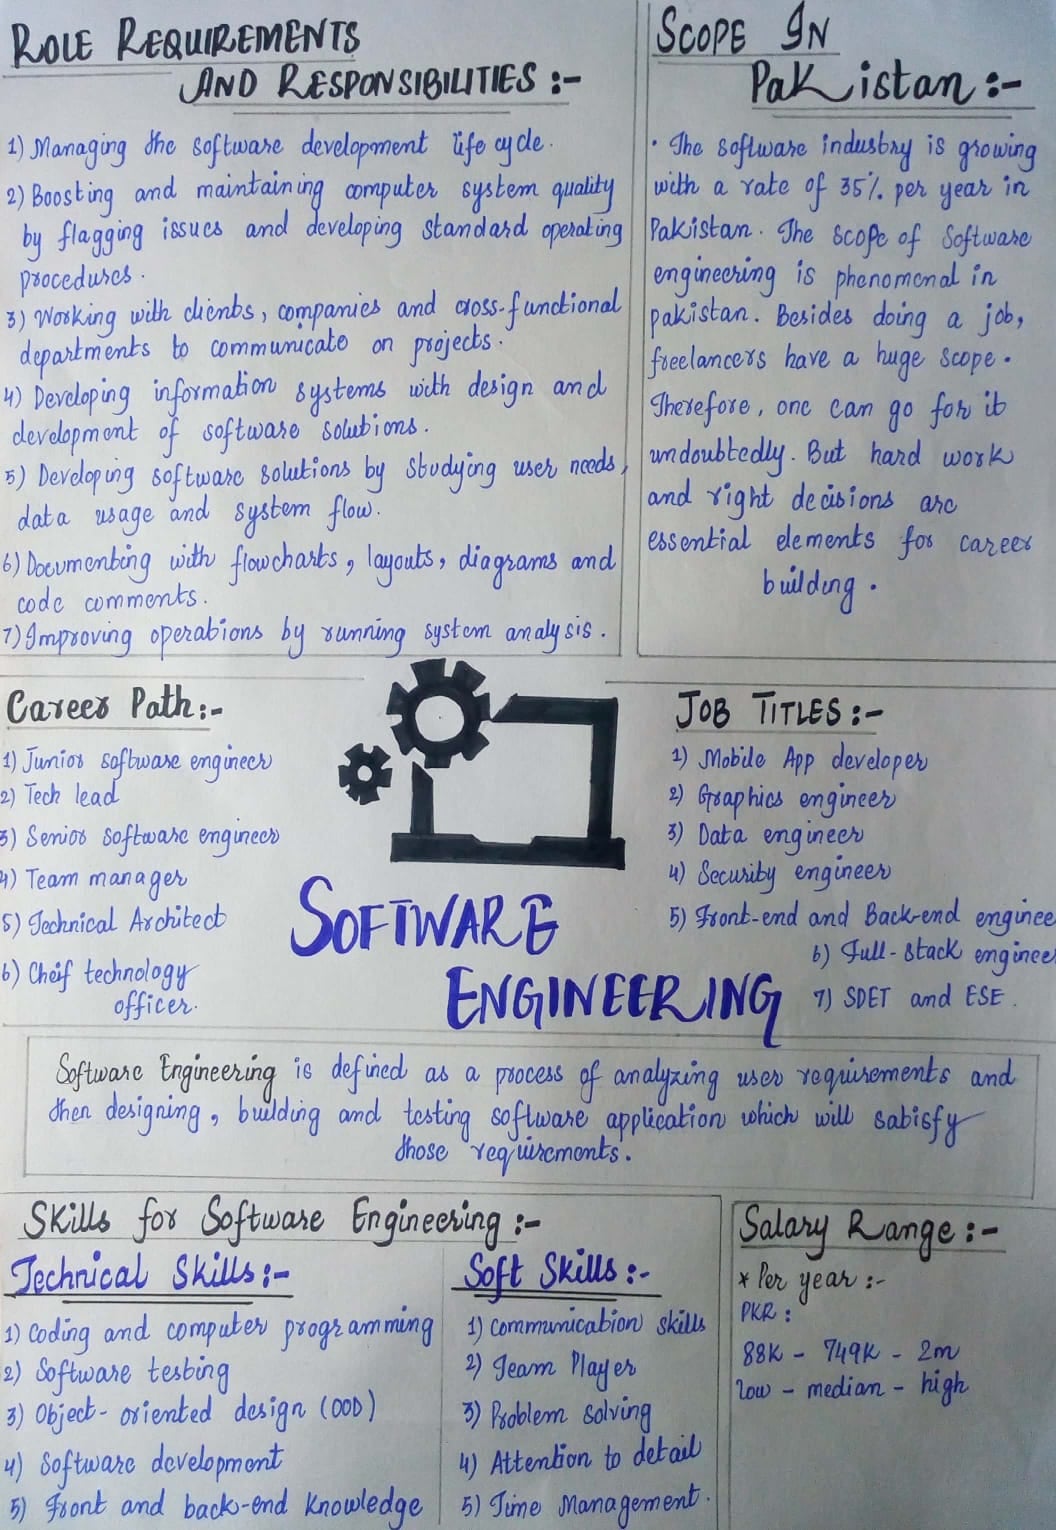 ROLE REQUIREMENTS
AND RESPONSIBILITIES :-
1) Managing the software development life cycle.
2) Boosting and maintaining computer system quality
by flagging issues and developing standard operating
procedures.
3) Working with clients, companies and cross-functional
departments to communicate on projects.
4) Developing information systems with design and
development of software solutions.
5) Developing software solutions by studying user needs,
data usage and system flow.
6) Documenting with flowcharts, layouts, diagrams and
code comments.
7) Improving operations by running system analysis.
SCOPE IN
Pakistan :-
· The software industry is growing
with a rate of 35% per year in
Pakistan. The scope of Software
engineering is phenomenal in
pakistan. Besides doing a job,
freelancers have a huge scope.
Therefore, one can go for it
undoubtedly. But hard work
and right decisions are
essential elements for career
building.
Career Path :-
1) Junior software engineer
2) Tech lead
3) Senior software engineer
4) Team manager
5) Technical Architect
6) Cheif technology
officer.
SOFTWARE
ENGINEERING
JOB TITLES :-
1) Mobile App developer
2) Graphics engineer
3) Data engineer
4) Security engineer
5) Front-end and Back-end enginee
6) Full-stack enginee
7) SDET and ESE.
Software Engineering is defined as a process of analyzing user requirements and
then designing, building and testing software application which will satisfy
those requirements.
Skills for Software Engineering :-
Technical Skills :-
1) Coding and computer programming
2) Software testing
3) Object-oriented design (OOD)
4) Software development
5) Front and back-end knowledge
Soft Skills :-
1) Communication skills
2) Team Player
3) Problem solving
4) Attention to detail
5) Time Management.
Salary Range :-
* Per year :-
PKR :
88K - 749K - 2m
low - median - high